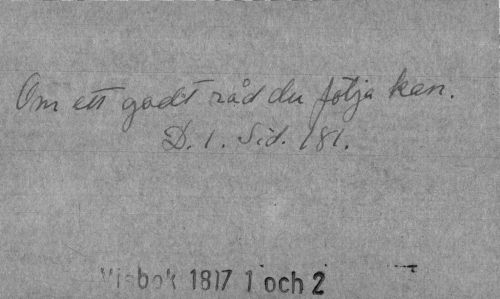 Om ett godt råd du följa kan.
D. 1. Sid. 181.
Visbok 1817 1 och 2